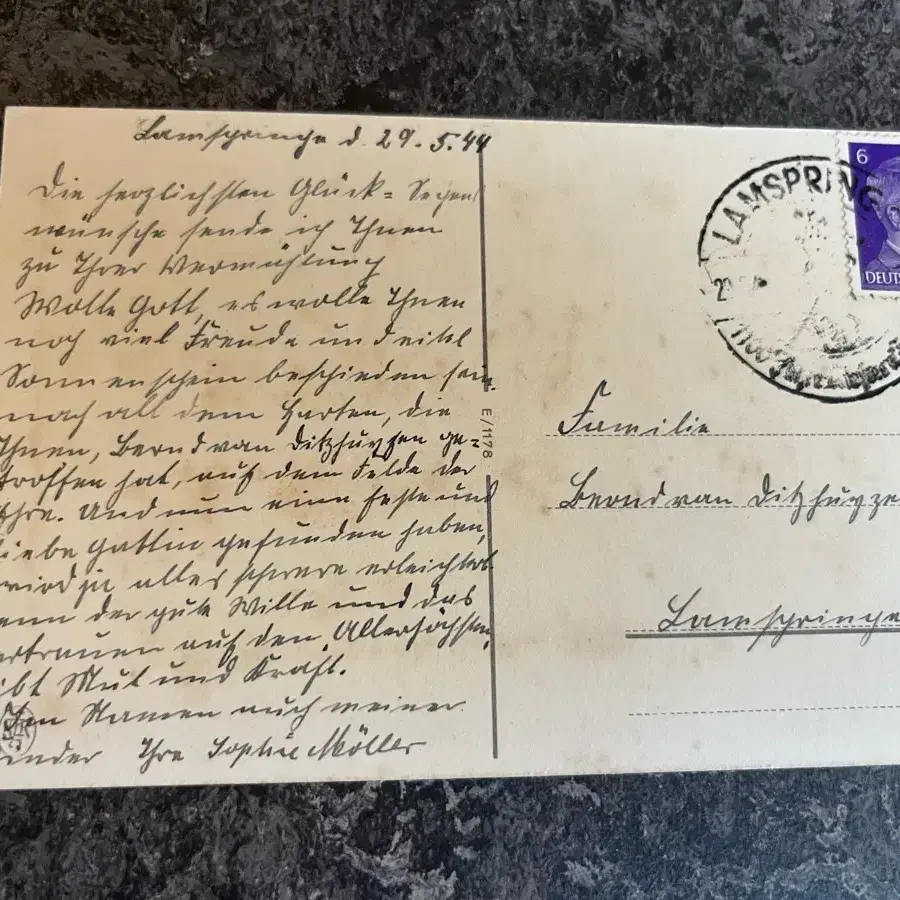 Lamspringe d. 29.5.44
Die herzlichsten Glück= Segens
wünsche sende ich Ihnen
zu Ihrer Vermählung
Wolle Gott, es wolle Ihnen
noch viel Freude und eitel
Sonnenschein beschieden sein.
nach all dem Harten, die
Ihnen, Berndvan Ditzhuyzen ge=
troffen hat, auf dem Felde der
Ehre. Und nun eine feste und
liebe Gattin gefunden haben,
wird ja alles schwere erleichtert
enn der gute Wille und das
ertrauen auf den Allerhöchsten,
ibt Mut und Kraft.
Namen auch meiner
inder Ihre Sophie Möller
E/1178
LAMSPRINGE
1100 Jahr
6
DEUTS
Familie
Berndvan Ditzhuyze
Lamspringe